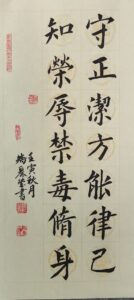 守正潔方能律己
知榮辱禁毒脩身
壬寅秋月
書